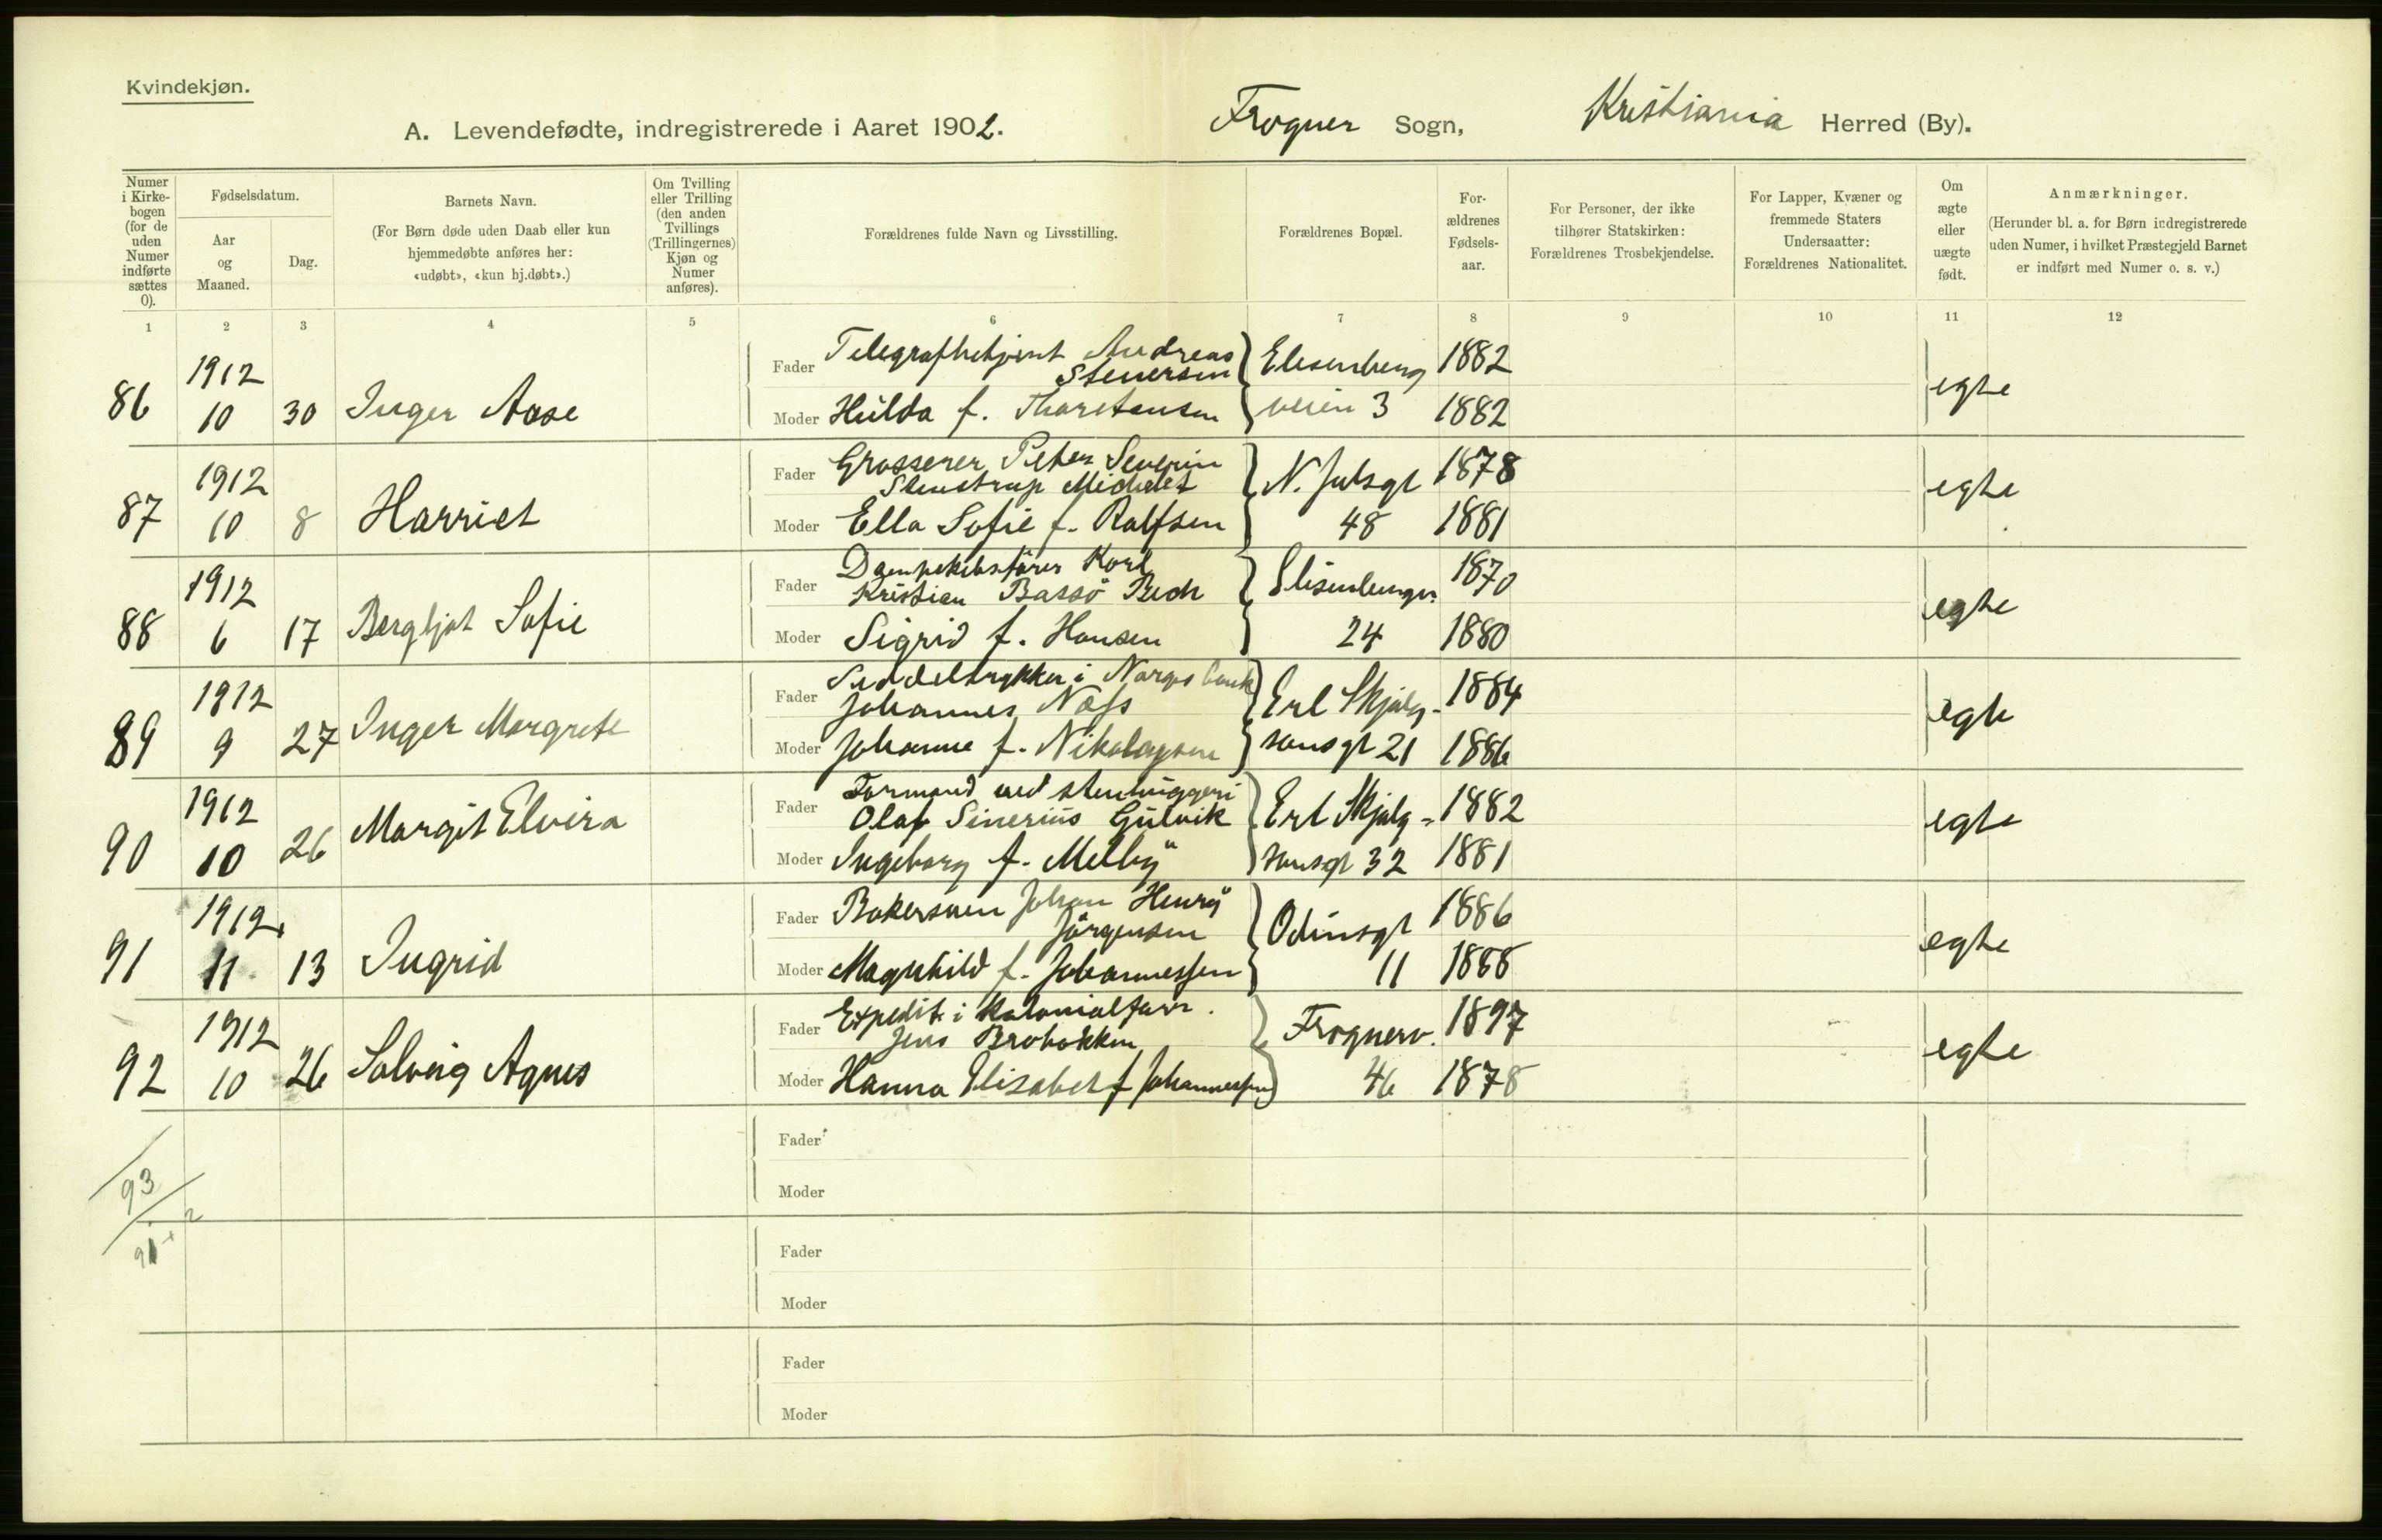 Kvindekjøn.
A. Levendefødte, indregistrerede i Aaret 1902. Frogner Sogn, Kristiania Herred (By).
Numer i Kirkebogen (for de uden Numer indførte sættes 0).
Fødselsdatum.
Aar og Maaned.
Dag.
Barnets Navn.
(For Børn døde uden Daab eller kun hjemmedøbte anføres her: «udøbt», «kun hj.døbt».)
Om Tvilling eller Trilling (den anden Tvillings (Trillingernes) Kjøn og Numer anføres).
Forældrenes fulde Navn og Livsstilling.
Forældrenes Bopæl.
Forældrenes Fødselsaar.
For Personer, der ikke tilhører Statskirken: Forældrenes Trosbekjendelse.
For Lapper, Kvæner og fremmede Staters Undersaatter: Forældrenes Nationalitet.
Om ægte eller uægte født.
Anmærkninger.
(Herunder bl. a. for Børn indregistrerede uden Numer, i hvilket Præstegjeld Barnet er indført med Numer o. s. v.)
1 2 3 4 5 6 7 8 9 10 11 12
1912 Fader Telegrafbetjent Andreas Stenersen Elisenberg 1882
86 10 30 Inger Aase Moder Hulda f. Thorstensen veien 3 1882 egte
1912 Fader Grosserer Peter Severin Steenstrup Michelet N. Julsgt 1878
87 10 8 Harriet Moder Ella Sofie f. Rolfsen 48 1881 egte
1912 Fader Dampskibsfører Karl Kristian Bassö Bech Elisenbergv. 1870
88 6 17 Bergljot Sofie Moder Sigrid f. Hansen 24 1880 egte
1912 Fader Seddeltrykker i Norges bank Johannes Næss Erl Skjalg- 1884
89 9 27 Inger Margrete Moder Johanne f. Nikolaysen sønsgt 21 1886 egte
1912 Fader Formand ved stenhuggeri Olaf Sinerius Gulvik Erl Skjalg- 1882
90 10 26 Margit Elvira Moder Ingeborg f. Melby sønsgt 32 1881 egte
1912 Fader Bakersven Johan Henry Jörgensen Odinsgt 1886
91 11 13 Ingrid Moder Magnhild f. Johannessen 11 1888 egte
1912 Fader Expedit. i Kolonialforr. Jens Brobakken Frognerv. 1897
92 10 26 Solveig Agnes Moder Hanna Elisabet f Johannessen 46 1878 egte
Fader
Moder
93
Fader
Moder
Fader
Moder